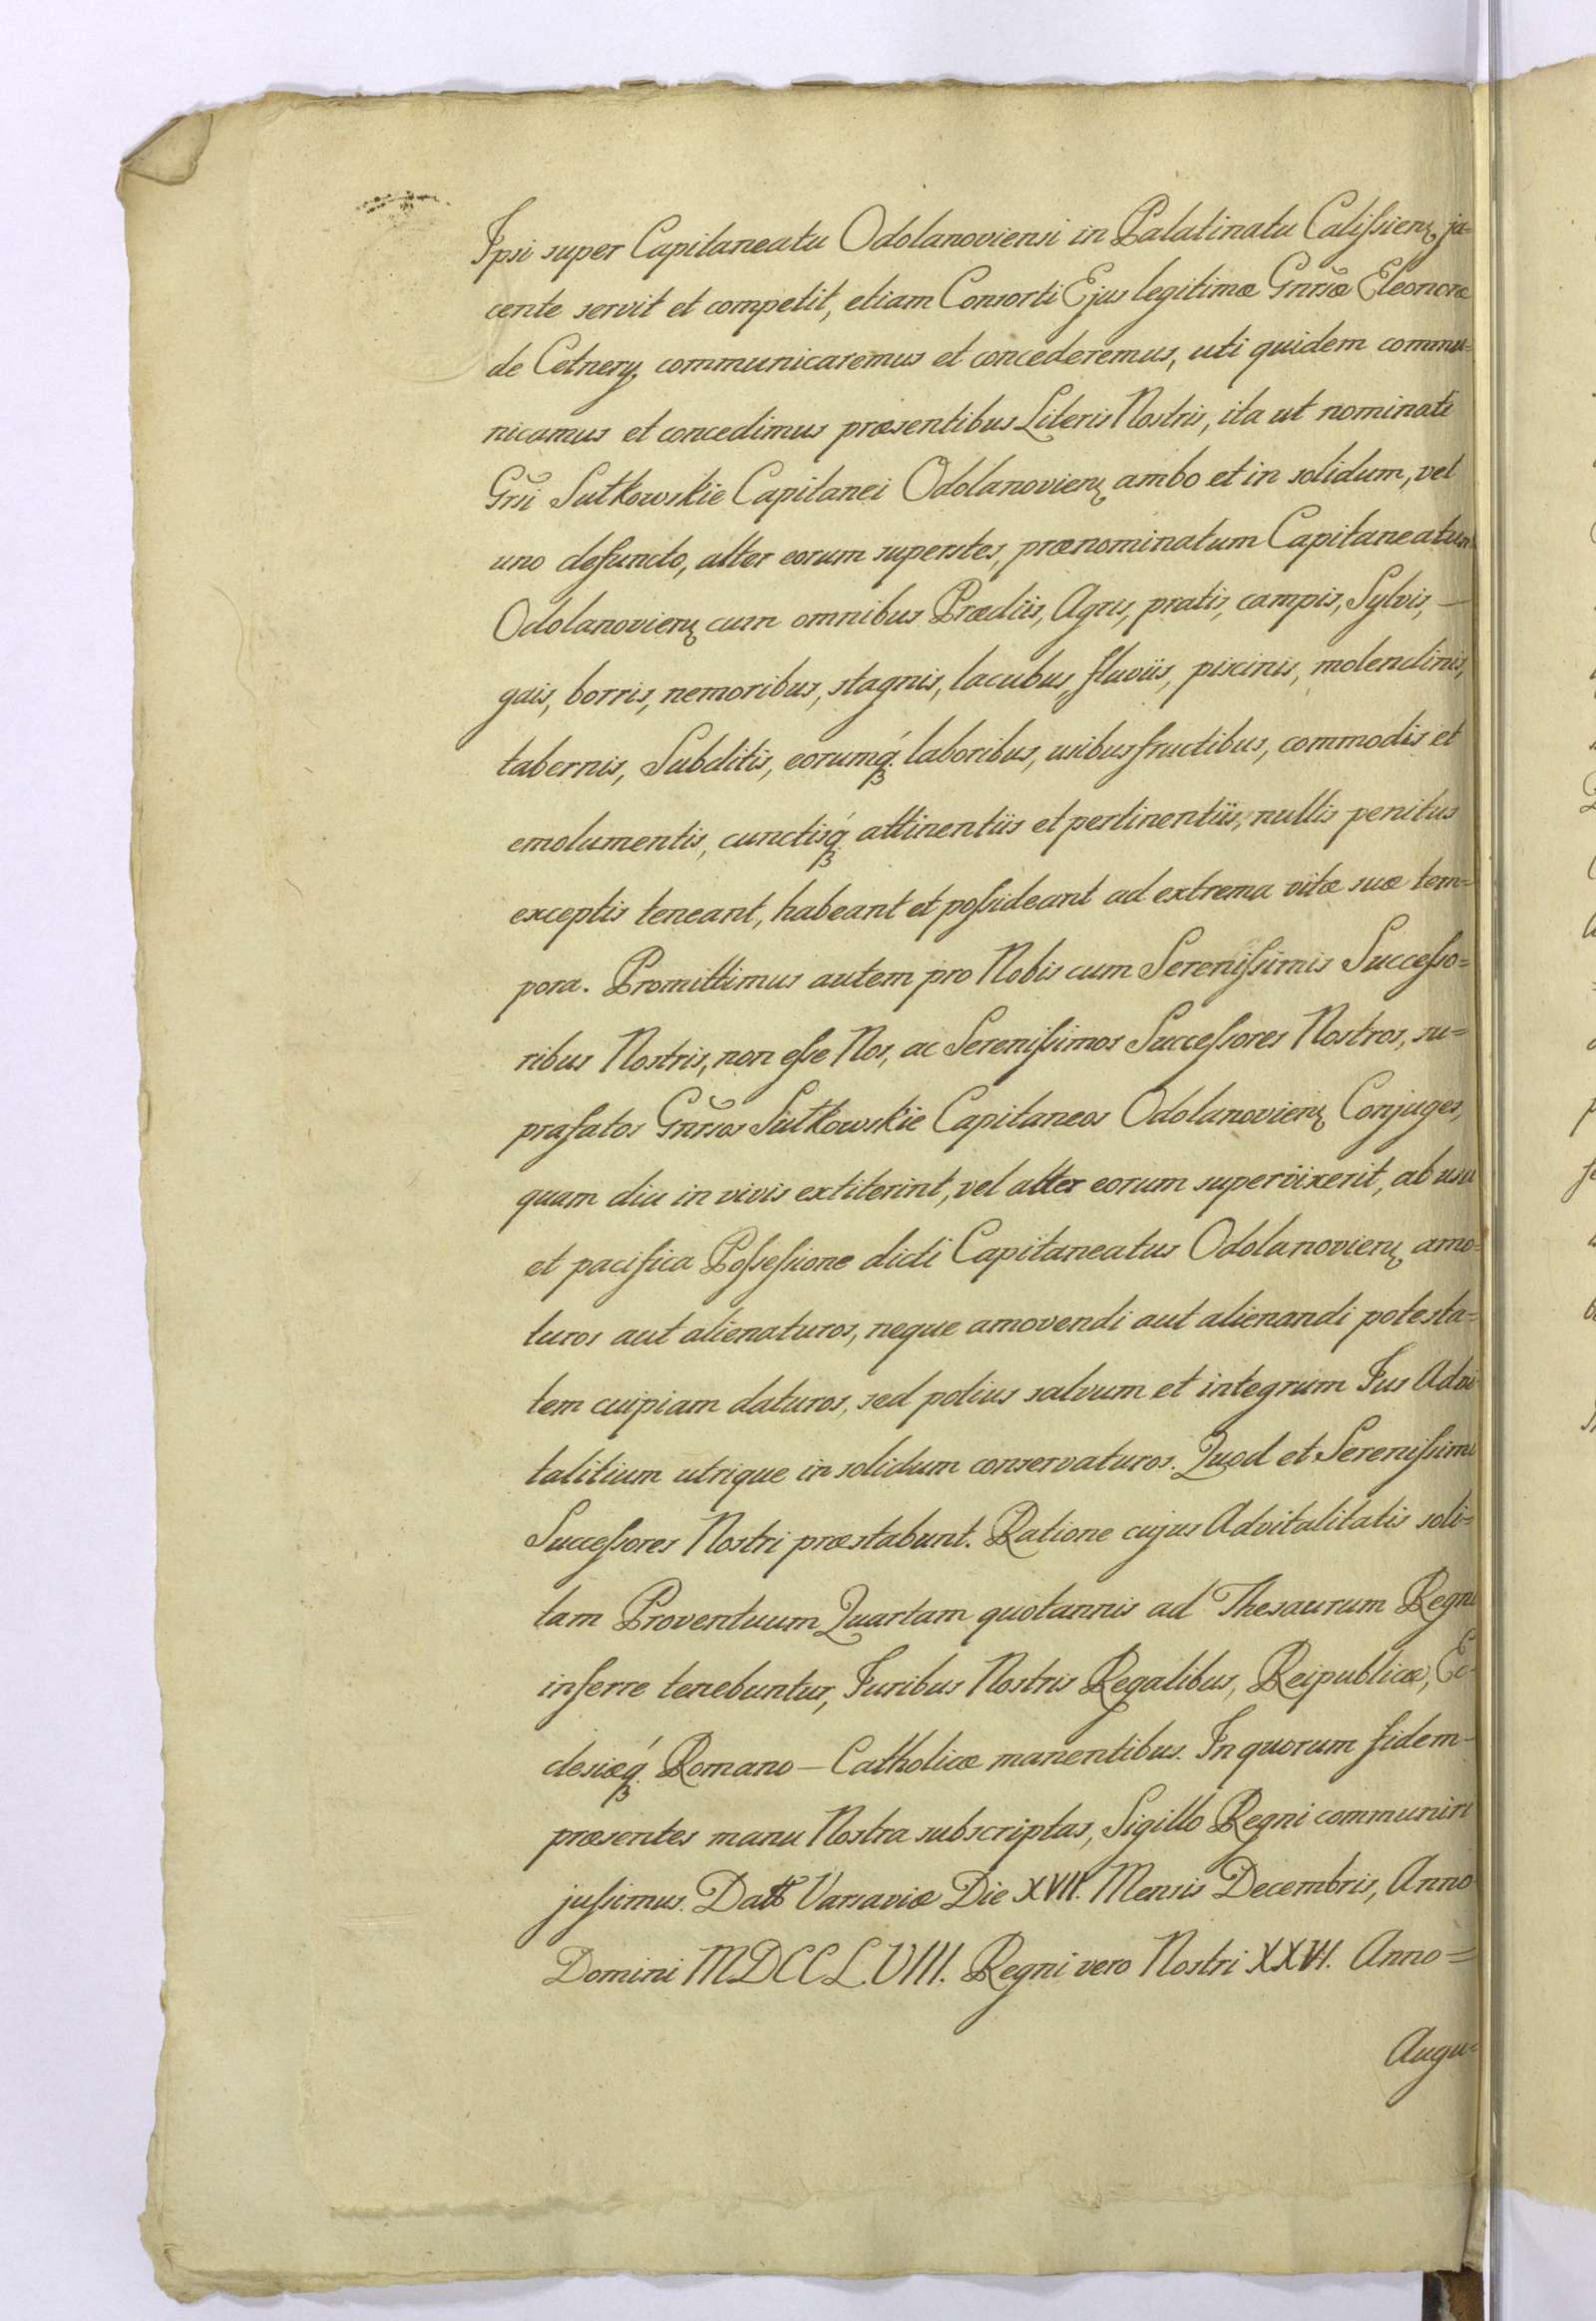 Ipsi super Capitaneatu Odolanoviensi in Palatinatu Calissienꝫ ja-
cente servit et competit, etiam Consorti Ejus legitimæ Gnrsæ Eleonoræ
de Cetnery, communicaremus et concederemus, uti quidem commu-
nicamus et concedimus præsentibus Literis Nostris, ita ut nominati
Grsi Sułkowskie Capitanei Odolanovienꝫ ambo et in solidum, vel
uno defuncto, alter eorum superstes, prænominatum Capitaneatum
Odolanovienꝫ cum omnibus Prædiis, Agris, pratis, campis, Sylvis, —
gais, borris, nemoribus, stagnis, lacubus, fluviis, piscinis, molendinis,
tabernis, Subditis, eorumq́ꝫ laboribus, usibusfructibus, commodis et
emolumentis, cunctisq́ꝫ attinentiis et pertinentiis, nullis penitus
exceptis teneant, habeant et possideant ad extrema vitæ suæ tem=
pora. Promittimus autem pro Nobis cum Serenissimis Successo=
ribus Nostris, non esse Nos, ac Serenissimos Successores Nostros, su=
prafatos Gnrsos Sułkowskie Capitaneos Odolanovienꝫ Conjuges,
quam diu in vivis extiterint, vel alter eorum supervixerit, ab usu
et pacifica Possessione dicti Capitaneatus Odolanovienꝫ amo=
turos aut alienaturos, neque amovendi aut alienandi potesta=
tem cuipiam daturos, sed potius salvum et integrum Jus Advi
talitium utrique in solidum conservaturos. Quod et Serenissimi
Successores Nostri præstabunt. Ratione cujus Advitalitatis soli=
tam Proventuum Quartam quotannis ad Thesaurum Regni
inferre tenebuntur, Juribus Nostris Regalibus, Reipublicæ, Ec-
clesiæq́ꝫ Romano — Catholicæ manentibus. In quorum fidem -
præsentes manu Nostra subscriptas, Sigillo Regni communiri
jussimus. Datt Varsaviæ Die XVII. Mensis Decembris, Anno
Domini MDCCLVIII. Regni vero Nostri XXVI. Anno =
Augu=